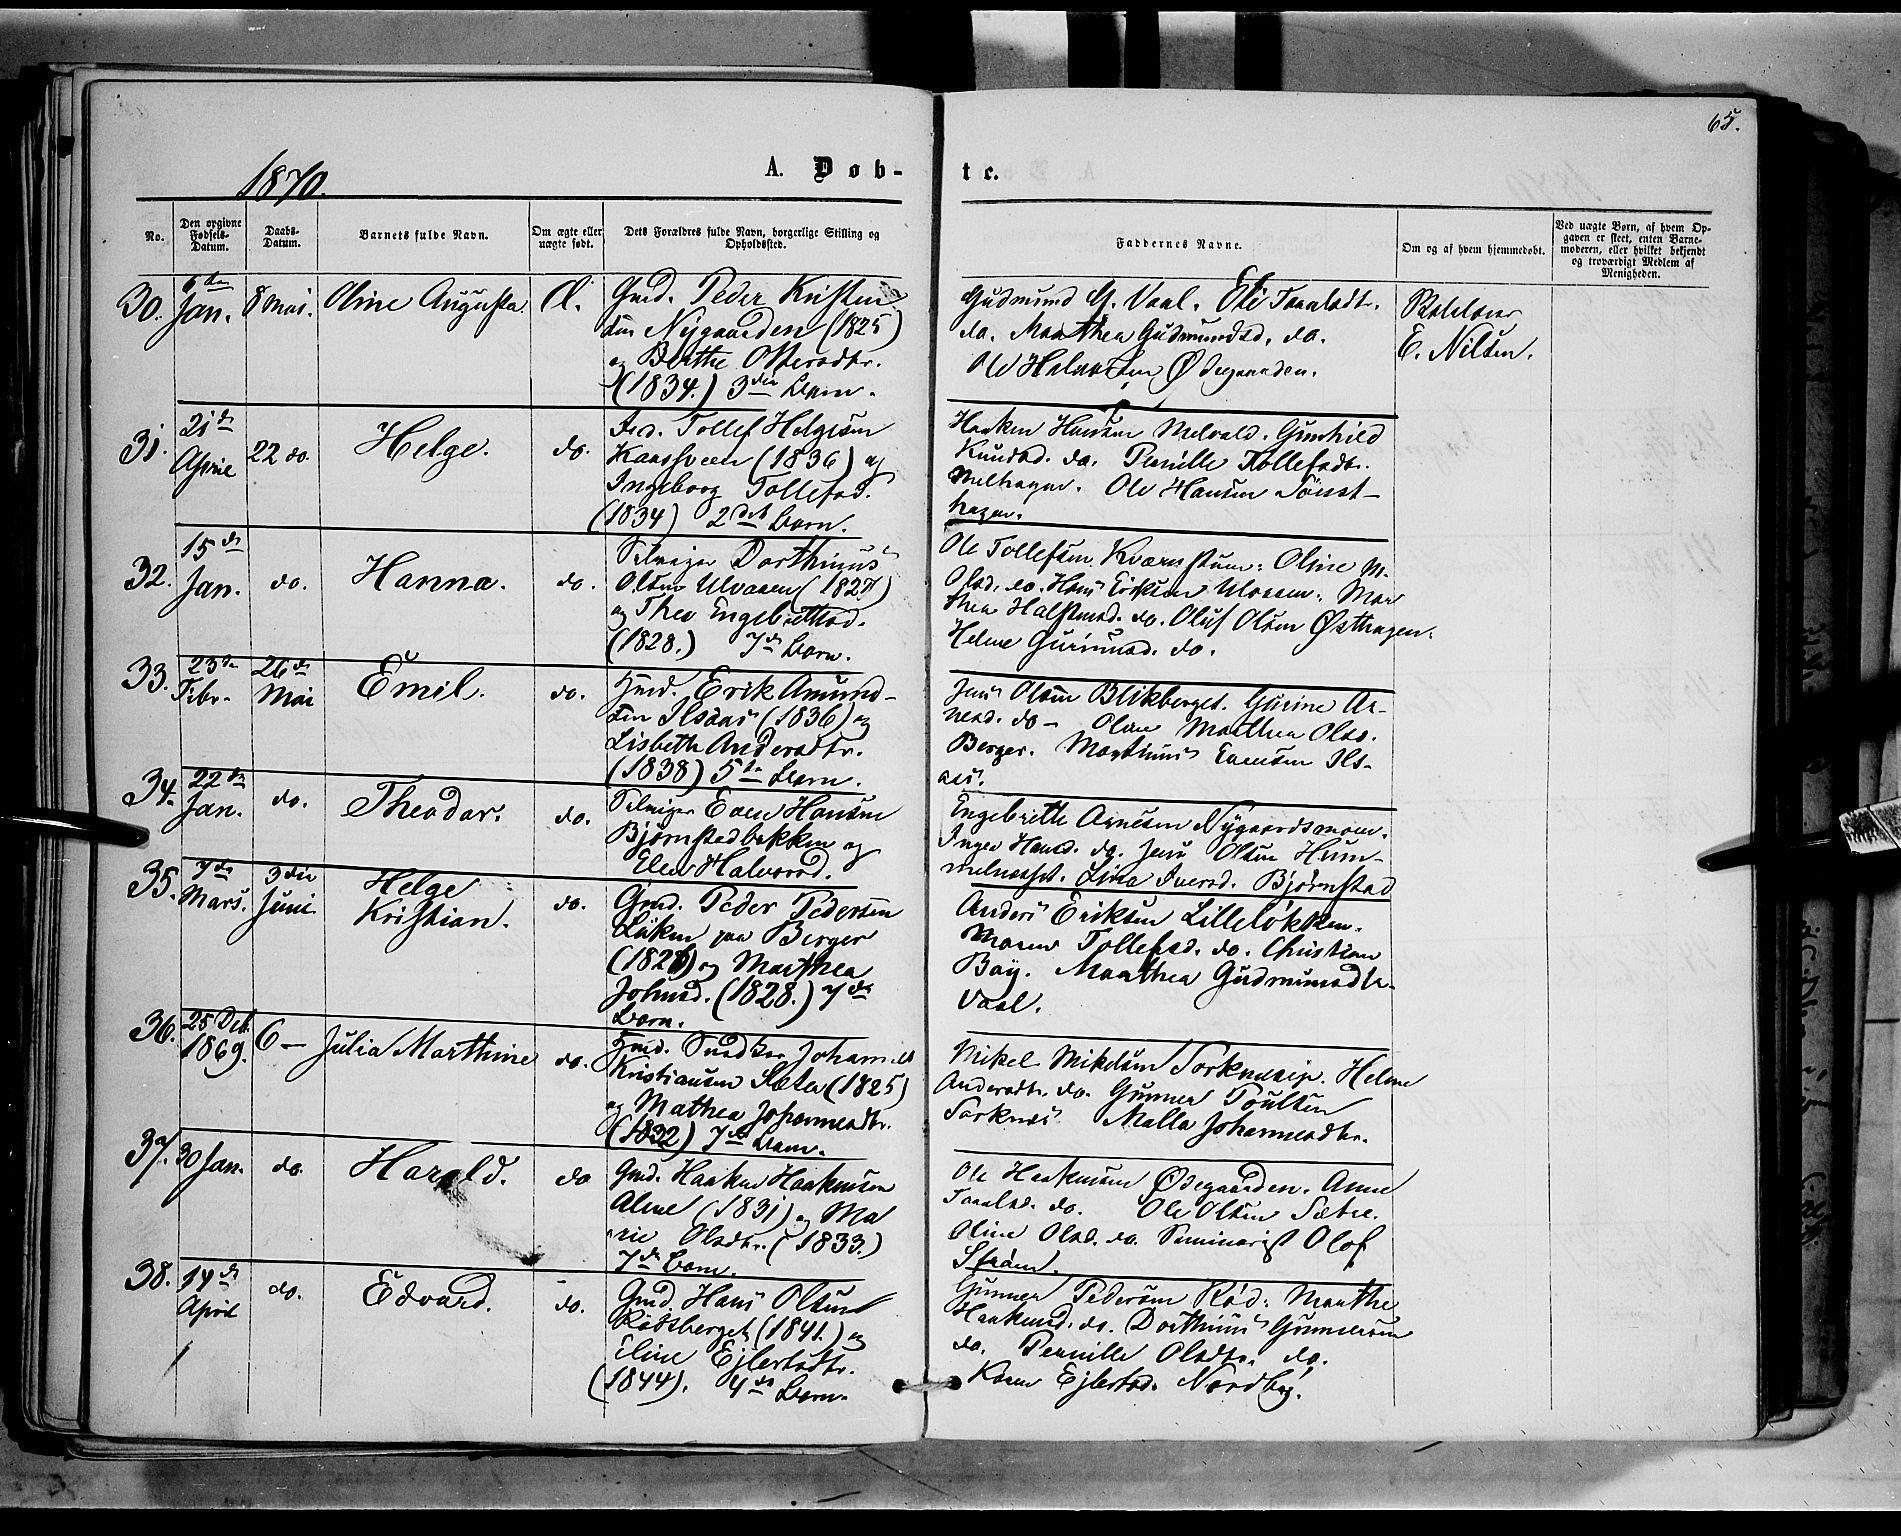 65.
1870.
A. Døb-
te.
No.
Den opgivne Fødsels-Datum.
Daabs-Datum.
Barnets fulde Navn.
Om ægte eller uægte født.
Dets Forældres fulde Navn, borgerlige Stilling og Opholdssted.
Faddernes Navne.
Om og af hvem hjemmedøbt.
Ved uægte Børn, af hvem Opgaven er skeet, enten Barnemoderen, eller hvilket bekjendt og troværdigt Medlem af Menigheden.
30. 6te Jan. 8 Mai. Oline Augusta Æ.
Gmd. Peder Kristen
sen Nygaarden (1825)
og Berthe Olsdtr.
(1834.) 3die Barn.
Gudmund G. Vaal. Eli
do. Marthea Gudmundsd. do.
Ole Halvorsen Ødegaarden.
E. Nilsen.
31. 21de April 22 do. Helge. do.
Tollef Helgesen
(1836) og
Ingeborg Tollefsd.
(1834) 2det Barn.
Haaken Hansen Melvold. Gunhild
Knudsd. do. Pernille Tollefsdtr.
Melhagen. Ole Hansen
hagen.
32. 15de Jan. do. Hanna. do.
Selveier Dorthinus
Olsen Ulvaaen (1827)
og Thea Engebretsd.
(1828.) 7de Barn.
Ole Tollefsen Kværnstuen. Oline M.
Olsd. do. Hans Eriksen Ulvaaen. Mar
thea Halstensd. do. Oluf Olsen Østhagen.
Helene do.
33. 23de Febr. 26de Mai Emil. do.
Hmd. Erik Amund-
sen Ilsaas (1836) og
Lisbeth Andersdtr.
(1838) 5te Barn.
Jens Olsen Blikberget. Gurine Ar-
nesd. do. Oline Marthea Olsd.
Berger. Marthinus Evensen Ils-
aas.
34. 22de Jan. do. Theodor. do.
Selveier Even Hansen
Bjørnstadbakken og
Elen Halvorsd.
Engebrette Arnesen Nygaardsmoen.
Inger Hansd. do. Jens Olsen Hum-
melnæsset. Lina Iversd. Bjørnstad
35. 7de Mars. 3die Juni Helge Kristian. do.
Gmd. Peder Pedersen
Løken paa Berger
og Marthea
Johnsd. (1828.) 7de
Barn.
Anders Eriksen Lilleløkken.
Maren Tollefsd. do. Christian
Bay. Marthea Gudmundsdtr.
Vaal.
36. 25 Deb. 1869. 6 — Julia Marthine do.
Hmd. Snedker Johannes
Kristiansen Sæter (1825)
og Mathea Johannesdtr.
(1832) 7de Barn.
Mikel Mikelsen Torkneseie. Helene
Andersdtr. do. Gunner Poulsen
Torknes Malla Johannesdtr.
37. 30 Jan. do. Harald. do
Gmd. Haaken Haakensen
Alme (1831) og Ma
rie Olsdtr. (1833.)
7de Barn.
Ole Haakensen Ødegaarden. Anne
do. Ole Olsen Sætre.
Oline Olsd. do. Seminarist Olof
Strøm.
38. 14de April do. Edvard. do.
Gmd. Hans Olsen
Rødsberget (1841.) og
Eline Ejlertsdtr.
(1844). 4de Barn.
Gunner Pedersen Rød. Marthe
Haakensd. do. Dorthinus Gunnersen
do. Pernille Olsdtr. do.
Karen Ejlertsd. Nordbÿ.